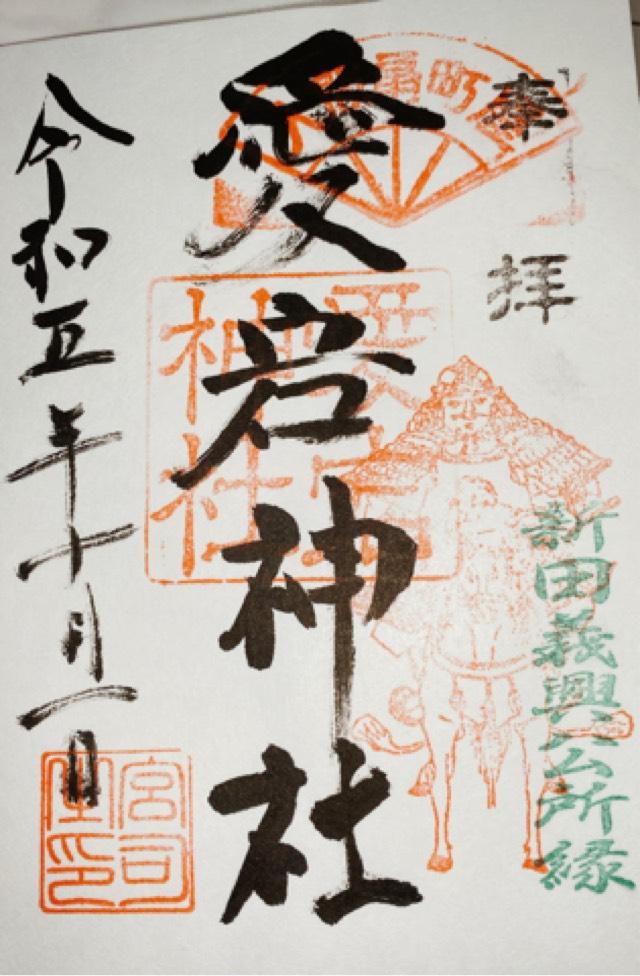 奉拝
新田義興公所縁
扇町
愛宕神社
愛宕
神社
令和五年十月一日
宮司
之印